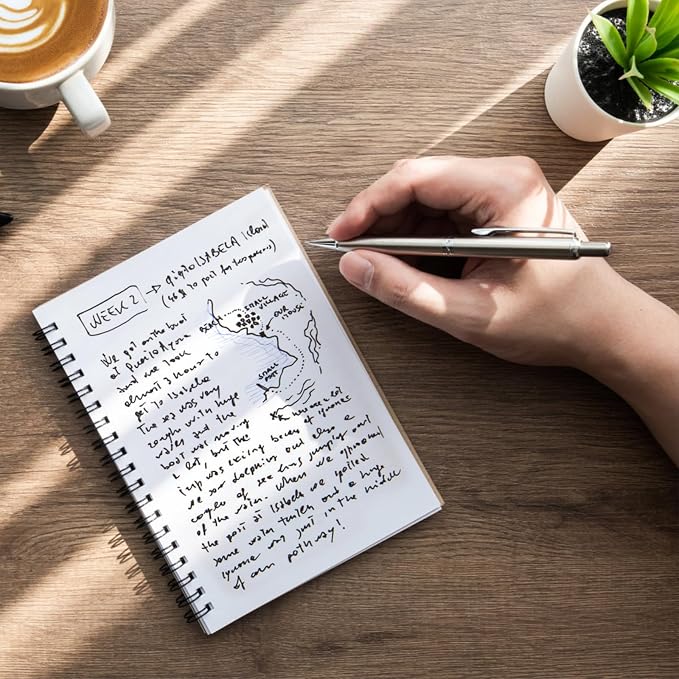 WEEK 2 → ISABELA Island
(46$ to port for two persons)
SMALL VILLAGE
OUR HOUSE
SMALL PORT
We got on the boat
at Puerto Ayora
and we took
almost 2 hour to
get to Isabela
The sea was very
rough with huge
waves and the
boat was moving
a lot, but the
trip was exciting because
we saw dolphins and also a
couple of sea lions jumping out
of the water. When we approached
the port at Isabela we spotted
some water turtles and a huge
iguana was just in the middle
of our pathway!